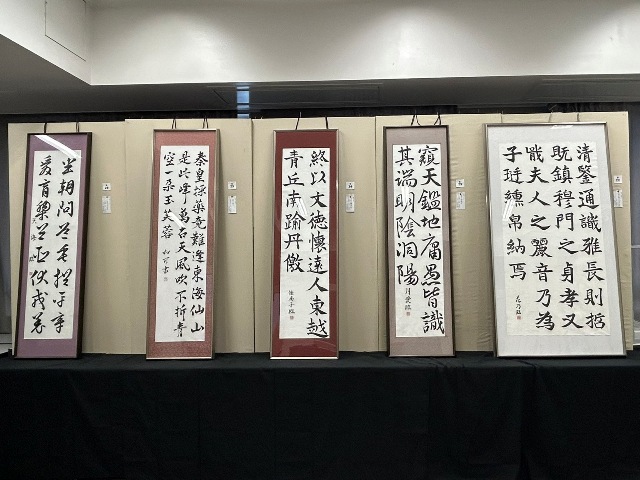 清鑒通識雅長則哲
既鎮穆門之身孝又
戰夫人之麗音乃為
子琁縑帛納焉
窺天鑑地庸愚皆識
其端明陰洞陽
終以文德懷遠人東越
青丘南踰丹儌
秦皇採藥竟難逢東海仙山
是此峰萬古天風吹不折青
空一朵玉芙蓉
坐朝問道垂拱平章
愛育黎首臣伏戎羌